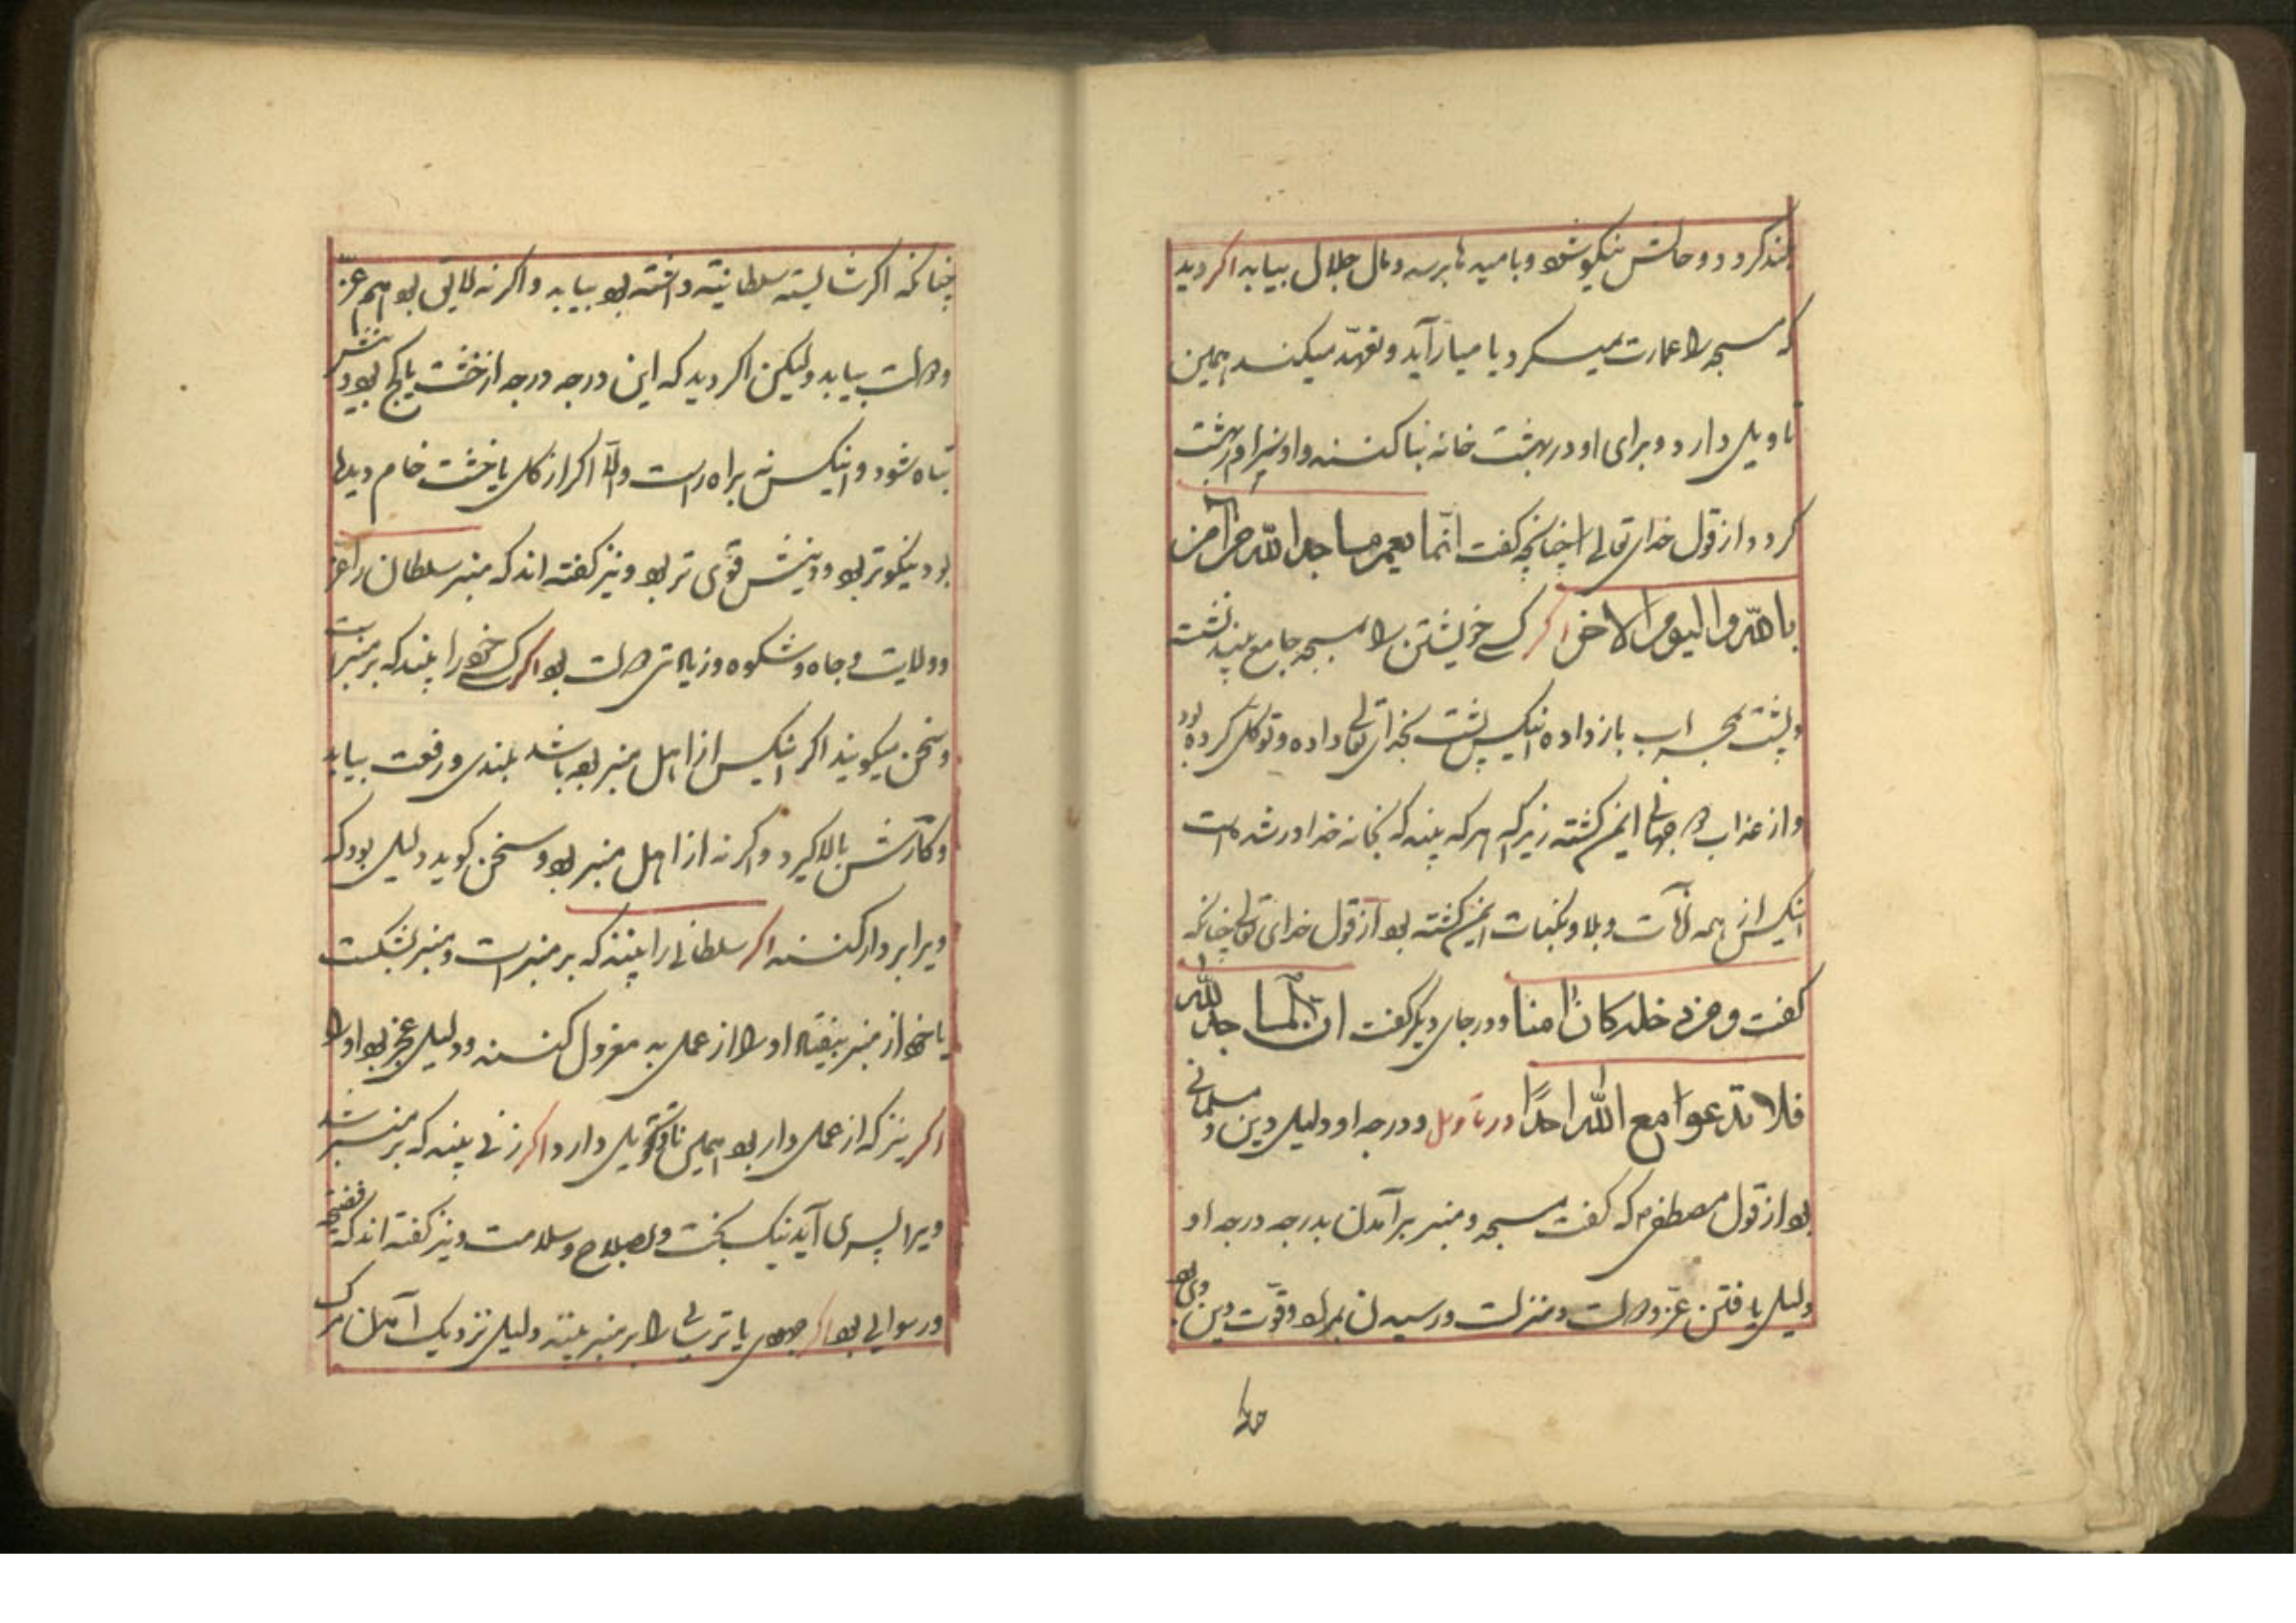 بلند کردد و حالش نیکو شود و بامیدها برسد و مال حلال بیابد اکر دید
که مسجد را عمارت میکرد یا میاراید و تعهّد میکند همین
تاویل دارد و برای او در بهشت خانه بنا کنند و او سزاوار بهشت
کردد از قول خدای تعالی چنانچه کفت انّما یعمر مساجد الله من آمن
بالله والیوم الاخر اکر کسی خویشتن را در مسجد جامع بیند نشسته
و پشت بمحراب باز داده آنکس پشت بخدای تعالی داده و توکل کرده بود
و از عذاب دو جهانی ایمن کشته زیرکه هر که بیند که بخانه خدا در شده است
آنکس از همه آفات و بلا و نکبات ایمن کشته بود از قول خدای تعالی چنانکه
کفت و من دخله کان امنا و در جای دیکر کفت ان المساجد لله
فلا تدعوا مع الله احدًا در تاویل و درجه او دلیل دین و مسلمانی
بود از قول مصطفی که کفت مسجد و منبر برآمدن بدرجه درجه او
دلیل یافتن عزّ و دولت و منزلت و رسیدن بمراد و قوّت دین وی بود
چنانکه اکر شایسته سلطانیته داشته بود بیابد و اکر نه لایق بود هم عزّ
و دولت بیابد ولیکن اکر دید که این درجه درجه از خشت یا کج بود دینش
تباه شود و آنکس نه براه راست و الّا اکر از کل یا خشت خام دیدها
بود نیکوتر بود و دینش قوّی تر بود و نیز کفته اند که منبر سلطان را عزّ
و ولایت و جاه و شکوه و زیادتی دولت بود اکر کسی خود را بیند که بر منبر است
و سخن میکویند اکر آنکس از اهل منبر بوده باشد بلندی و رفعت بیابد
و کارش بالا کیرد و اکر نه از اهل منبر بود و سخن کوید دلیل بود که
ویرا بر دار کنند اکر سلطانی را بیند که بر منبر است و منبر بشکست
یا خود از منبر بیفتاد او را از عمل به معزول کنند و دلیل عجز بود او را
اکر نیز که از عمل دار بود همین تاویل دارد اکر زنی بیند که بر منبر شد
ویرا پسری آید نیک بخت و بصلاح و سلامت و نیز کفته اند که فضیحه
و رسوائی بود اکر جهودی یا ترسائی را بر منبر بینند دلیل نزدیک آمدن مرک